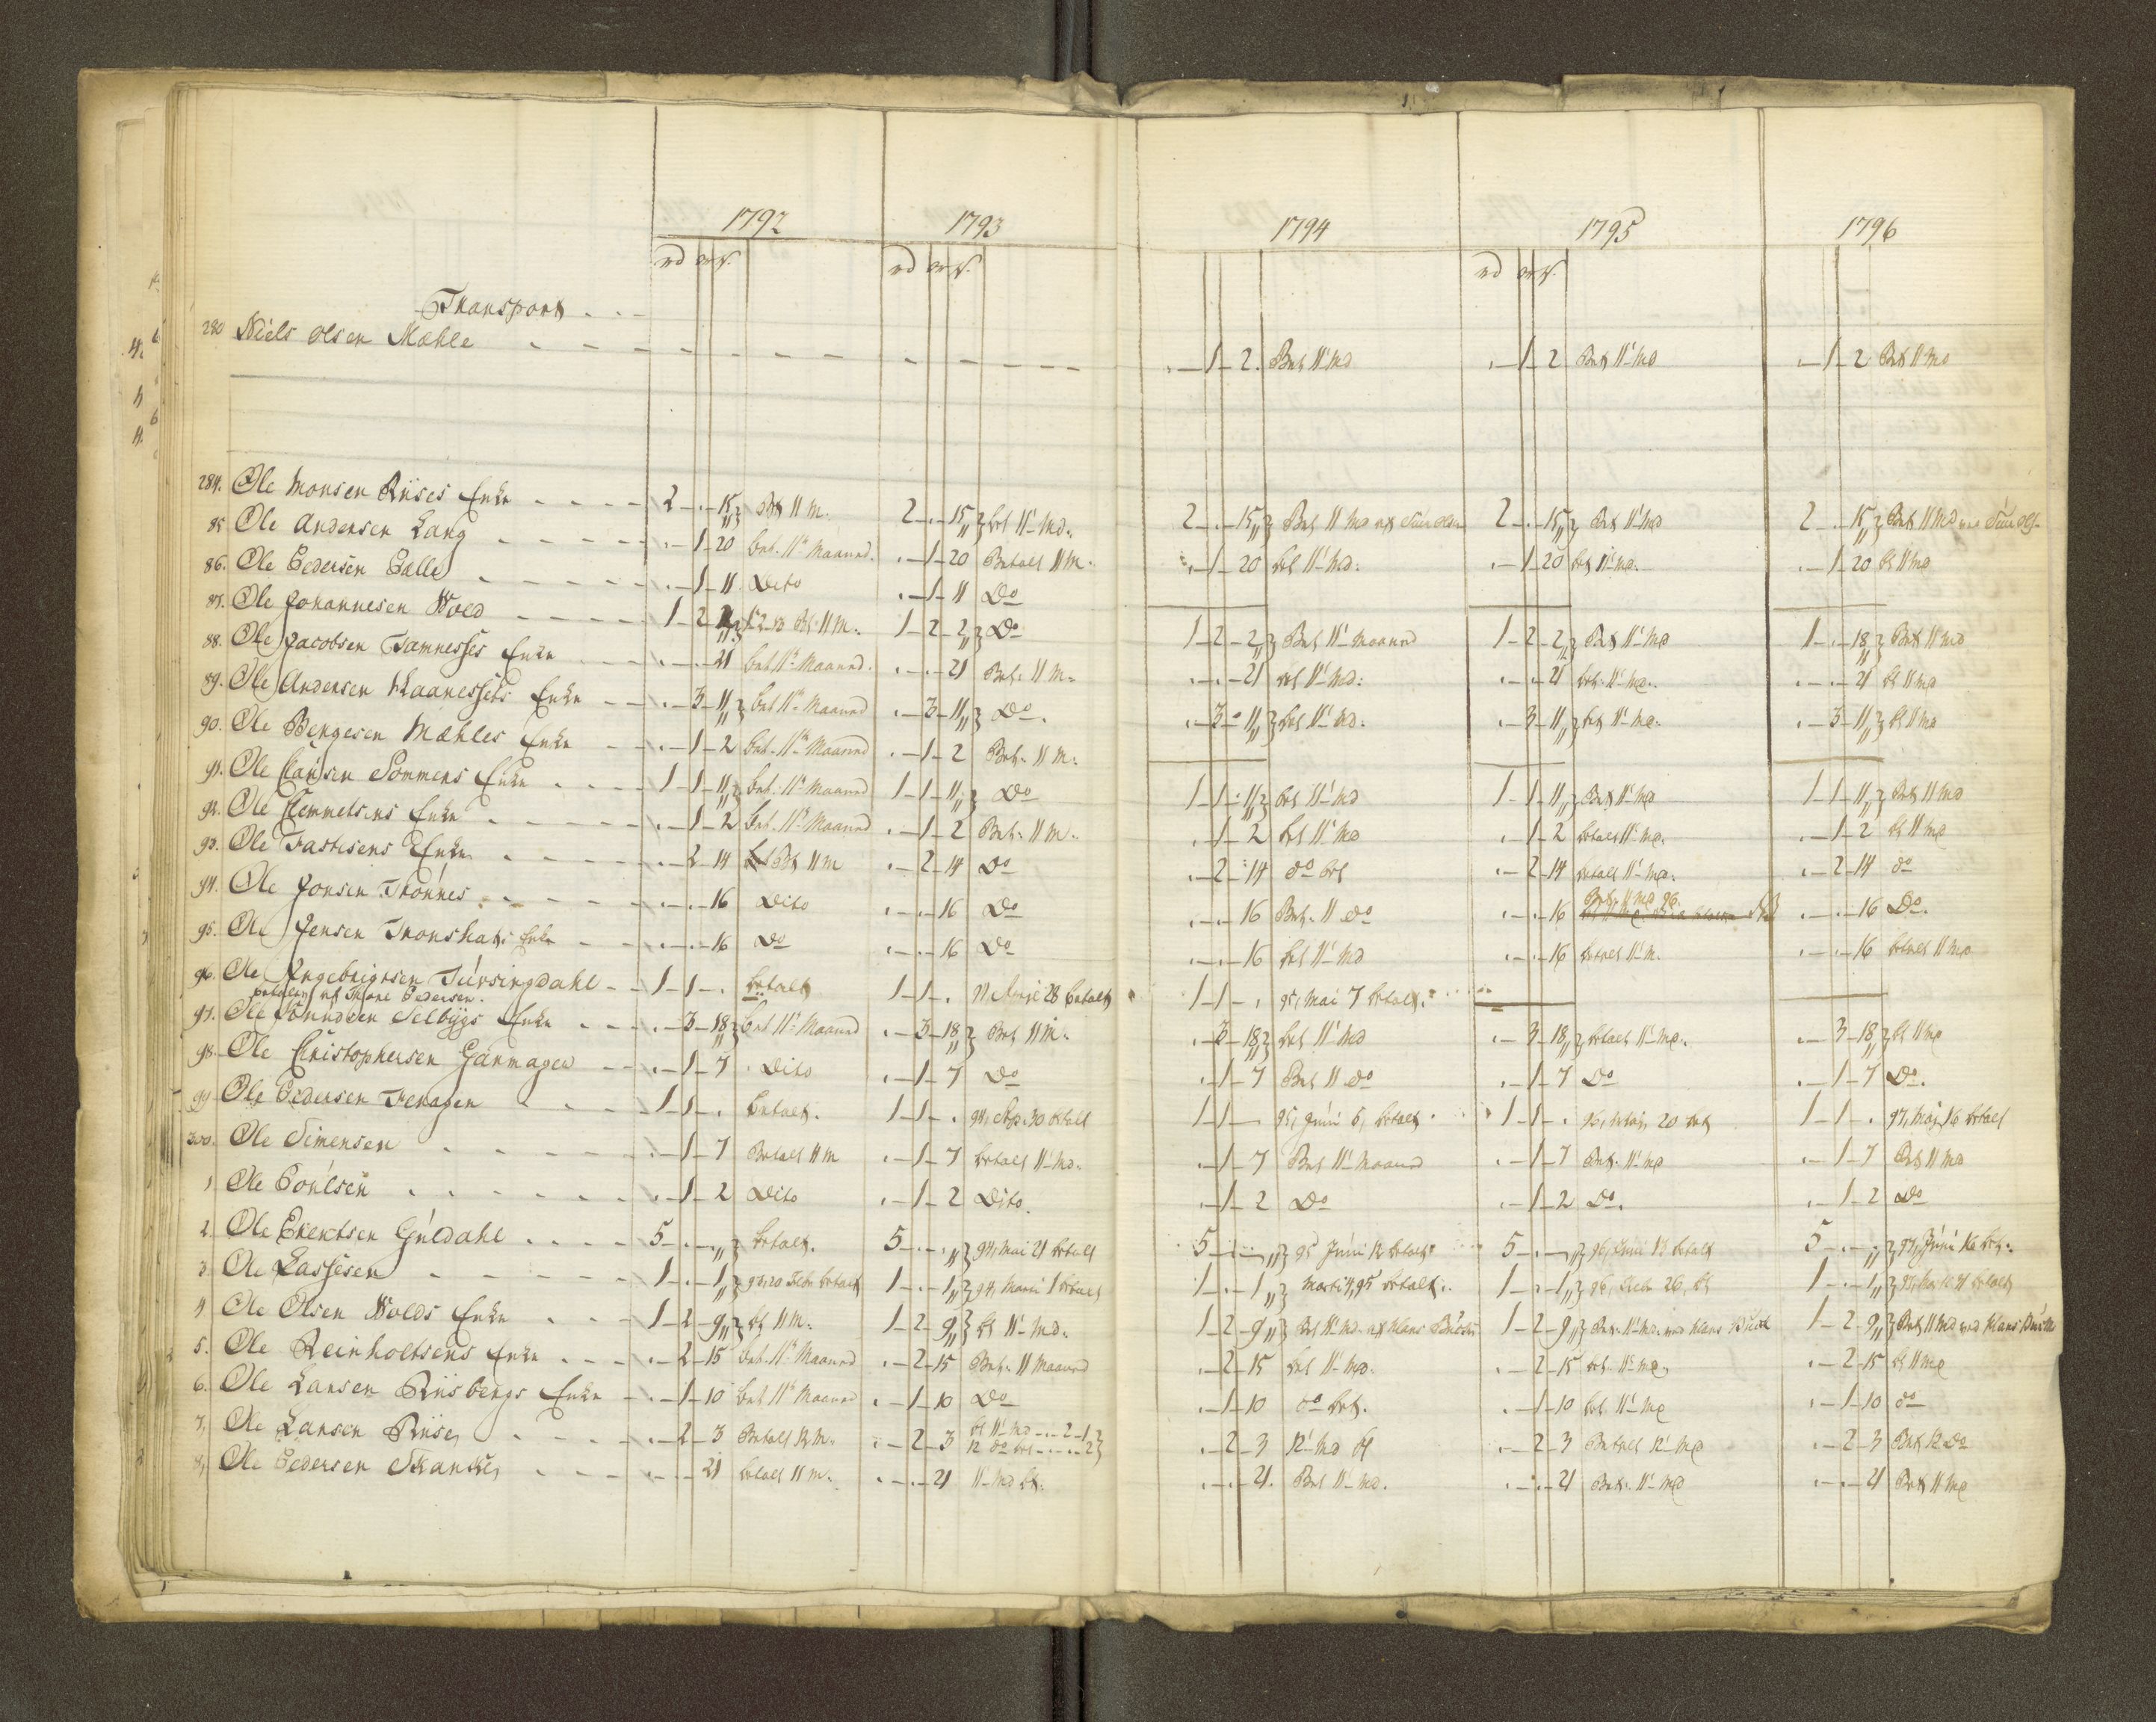 1792 1793 1794 1795 1796
rd ort s. rd ort s. rd ort s.
Transport . . -
280 Niels Olsen Mæhle - - - - . - 1 - 2. Bet 11 Md . - 1 - 2 Bet 11 Md . - 1 - 2 Bet 11 Md
284. Ole Monsen Riises Enke - - - - 2 - . - 15 Bet 11 M. 2 - . - 15 bet 11 Md. 2 - . - 15 Bet 11 Md 2 - . - 15 Bet 11 Md 2 - . - 15 Bet 11 Md
85 Ole Andersen Lang - - - - . - 1 - 20 bet. 11 Maaned. . - 1 - 20 Betalt 11 M. . - 1 - 20 bet 11 Md: . - 1 - 20 bet 11 Md. . - 1 - 20 bt 11 Md
86. Ole Pedersen Pælle - - - - . - 1 - 11 Dito . - 1 - 11 Do
87. Ole Johannesen Wold - - - - 1 - 2 - 2 Bet 11 M. 1 - 2 - 2 Do 1 - 2 - 2 Bet 11 Maaned 1 - 2 - 2 Bet 11 Md 1 - . - 18 Bet 11 Md
88. Ole Jacobsen Tamnesses Enke - - . - . - 21 bet 11 Maaned. . - . - 21 Bet. 11 M. . - . - 21 bet 11 Md: . - . - 21 bet. 11 Md. . - . - 21 bt 11 Md
89. Ole Andersen Enke - - . - 3 - 11 bet 11 Maaned . - 3 - 11 Do. . - 3 - 11 bet 11 Md. . - 3 - 11 bet 11 Md. . - 3 - 11 bt 11 Md
90. Ole Bengesen Mæhles Enke - - . - 1 - 2 bet. 11 Maaned . - 1 - 2 Bet. 11 M.
91. Ole Clausen Sommers Enke . . . . 1 - 1 - 11 bet. 11 Maaned 1 - 1 - 11 Do 1 - 1 - 11 bet 11 Md 1 - 1 - 11 Bet 11 Md 1 - 1 - 11 Bet 11 Md
92. Ole Clemmetsens Enke - - - . - 1 - 2 bet. 11 Maaned . - 1 - 2 Bet. 11 M. . - 1 - 2 bet 11 Md . - 1 - 2 betalt 11 Md. . - 1 - 2 bt 11 Md
93. Ole Fastesens Enke - - - . - 2 - 14 Bet 11 M . - 2 - 14 Do . - 2 - 14 do bet . - 2 - 14 betalt 11 Md. . - 2 - 14 do
94. Ole Jonsen Thonnes - - - . - . - 16 Dito . - . - 16 Do . - . - 16 Bet. 11 do . - . - 16 Bet 11 Md 96. . - . - 16 Do.
95. Ole Jensen Tronshats Enke - - . - . - 16 Do . - . - 16 Do . - . - 16 bet 11 Md . - . - 16 betalt 11 M. . - . - 16 betalt 11 Md
96. Ole Ingebrigtsen Tursingdahl - - 1 - 1 - . betalt 1 - 1 - . 28 betalt 1 - 1 - . 95, Mai 7 betalt.
betales af Thore Pedersen.
97. Ole Joundsen Selbygs Enke . . . - 3 - 18 bet 11 Maaned . - 3 - 18 Bet 11 M. . - 3 - 18 bet 11 Md . - 3 - 18 betalt 11 Md. . - 3 - 18 bt 11 Md
98. Ole Christophersen Garmager - - . - 1 - 7 Dito . - 1 - 7 Do . - 1 - 7 Bet 11 do . - 1 - 7 Do . - 1 - 7 Do.
99 Ole Pedersen Feragen - - - 1 - 1 - . betalt. 1 - 1 - . 94, Ap. 30 betalt 1 - 1 - 95, Juni 6, betalt 1 - 1 - . 96, Maj, 20 bet 1 - 1 - . 97, Maj 16 betalt
300. Ole Simensen . . . . - 1 - 7 Betalt 11 M . - 1 - 7 betalt 11 Md. . - 1 - 7 Bet 11 Maaned . - 1 - 7 Bet. 11 Md . - 1 - 7 Bet 11 Md
1 Ole Poulsen . . . . . - 1 - 2 Dito . - 1 - 2 Dito. . - 1 - 2 Do . - 1 - 2 Do. . - 1 - 2 Do
2. Ole Evertsen Guldahl . . . . 5 - . - betalt. 5 - . - 94, Mai 21 betalt 5 - - 95 Juni 12 betalt 5 - . - 96, Juni 13 betalt 5 - . - 97, Juni 16 bet.
3. Ole Lassesen - - - - 1 - . - 1 93, 20 Febr betalt 1 - . - 1 94, Martii 1 betalt 1 - . - 1 Marti 4, 95 betalt. 1 - . - 1 96, Febr 26, bt 1 - . - 1 betalt
4 Ole Olsen Wolds Enke . . . 1 - 2 - 9 bt 11 M. 1 - 2 - 9 bt 11 Md. 1 - 2 - 9 Bet 11 Md. af Hans 1 - 2 - 9 Bet. 11 Md. ved Hans 1 - 2 - 9 Bet 11 Md ved Hans
5. Ole Reinholtsens Enke . . . . - 2 - 15 bet. 11 Maaned . - 2 - 15 Bet. 11 Maaned . - 2 - 15 bet 11 Md. . - 2 - 15 bet. 11 Md. . - 2 - 15 bt 11 Md
6. Ole Larsen Riisbergs Enke - . - 1 - 10 bet 11 Maaned . - 1 - 10 Do . - 1 - 10 do bet. . - 1 - 10 bet. 11 Md . - 1 - 10 do
7, Ole Larsen Riise, - - - . - 2 - 3 Betalt 12 M. . - 2 - 3 bt 11 Md - . - 2 - 1 . - 2 - 3 12 Md bt . - 2 - 3 Betalt 12 Md . - 2 - 3 Bet 12 Do
12 do bet - . - . - 2
8, Ole Pedersen Skancke, - - - . - . - 21 betalt 11 M. . - . - 21 11 Md bt. . - . - 21. Bet 11 Md. . - . - 21 Bet. 11 Md . - . - 21 Bet 11 Md